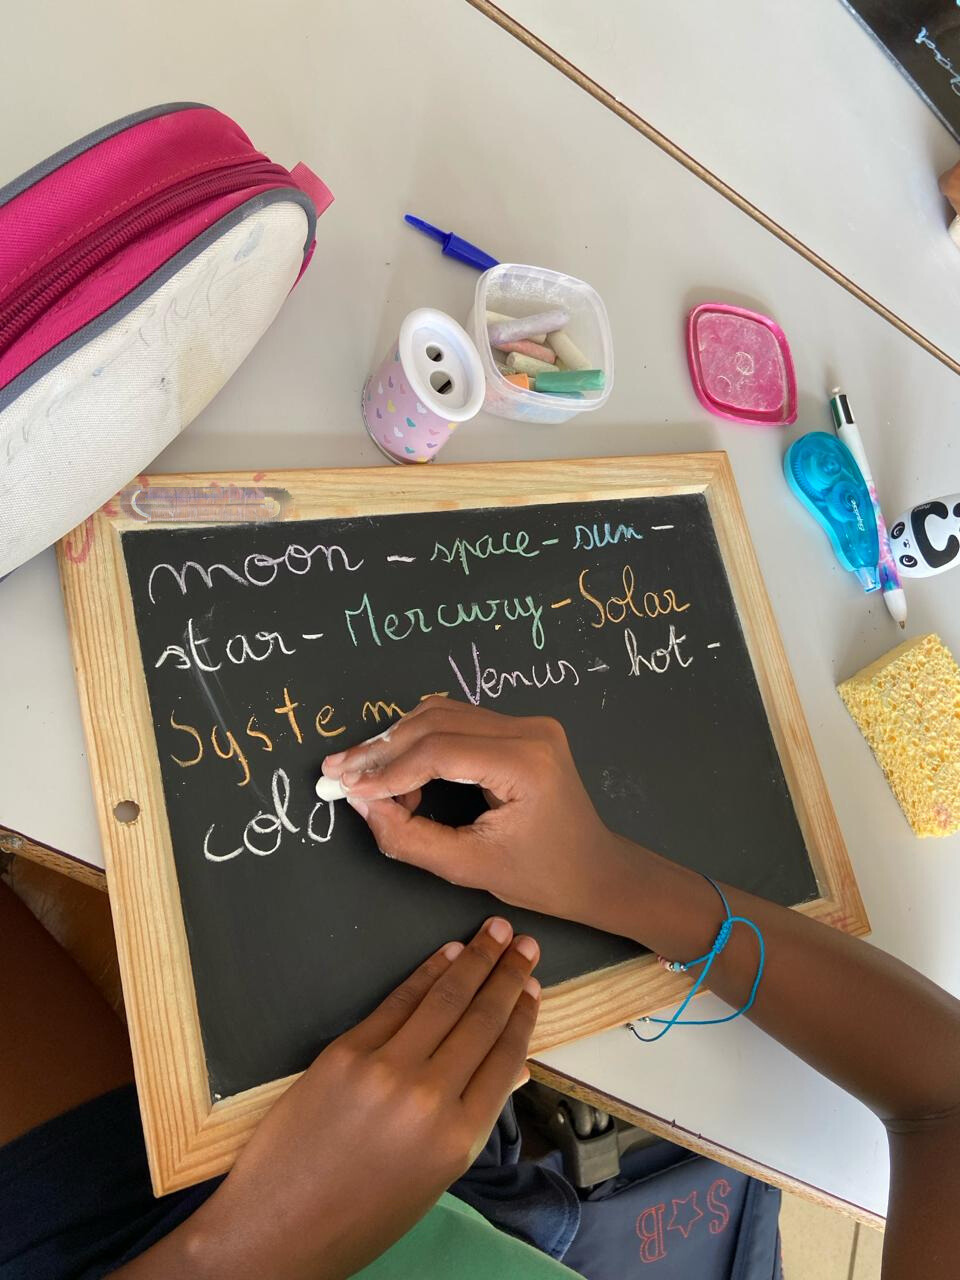 moon - space - sun -
star - Mercury - Solar
System - Venus - hot -
cold
S☆B